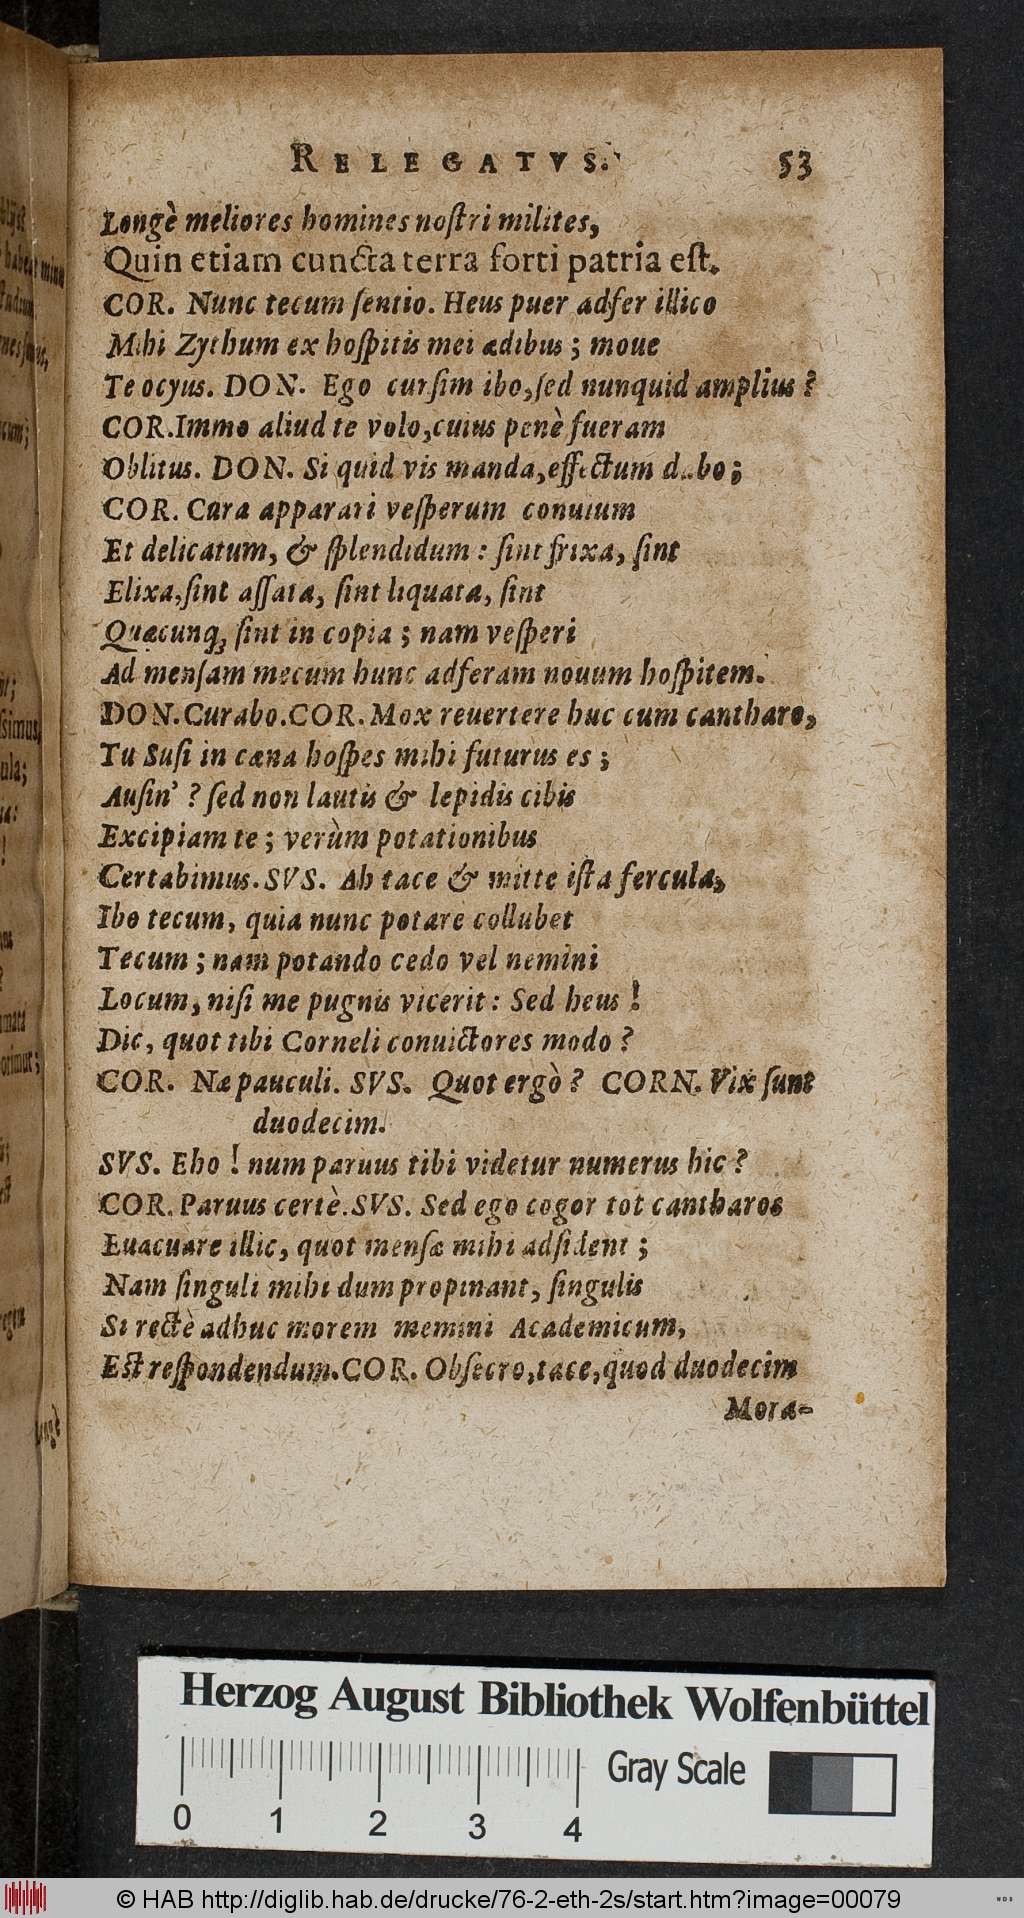 RELEGATVS. 53
Longè meliores homines noſtri milites,
Quin etiam cuncta terra forti patria eſt.
COR. Nunc tecum ſentio. Heus puer adfer illico
Mihi Zythum ex hoſpitis mei ædibus ; moue
Te ocyus. DON. Ego curſim ibo, ſed nunquid amplius ?
COR. Immo aliud te volo, cuius penè fueram
Oblitus. DON. Si quid vis manda, effectum dabo ;
COR. Cura apparari veſperum conuiuium
Et delicatum, & ſplendidum : ſint frixa, ſint
Elixa, ſint aſſata, ſint liquata, ſint
Quæcunq; ſint in copia ; nam veſperi
Ad menſam mecum hunc adferam nouum hoſpitem.
DON. Curabo. COR. Mox reuertere huc cum cantharo,
Tu Suſi in cæna hoſpes mihi futurus es ;
Auſin' ? ſed non lautis & lepidis cibis
Excipiam te ; verùm potationibus
Certabimus. SVS. Ah tace & mitte iſta fercula,
Ibo tecum, quia nunc potare collubet
Tecum ; nam potando cedo vel nemini
Locum, niſi me pugnis vicerit : Sed heus !
Dic, quot tibi Corneli conuictores modo ?
COR. Næ pauculi. SVS. Quot ergò ? CORN. Vix ſunt
duodecim.
SVS. Eho ! num paruus tibi videtur numerus hic ?
COR. Paruus certè. SVS. Sed ego cogor tot cantharos
Euacuare illic, quot menſæ mihi adſident ;
Nam ſinguli mihi dum propinant, ſingulis
Si rectè adhuc morem memini Academicum,
Eſt reſpondendum. COR. Obſecro, tace, quod duodecim
Mora-
Herzog August Bibliothek Wolfenbüttel
Gray Scale
0 1 2 3 4
© HAB http://diglib.hab.de/drucke/76-2-eth-2s/start.htm?image=00079